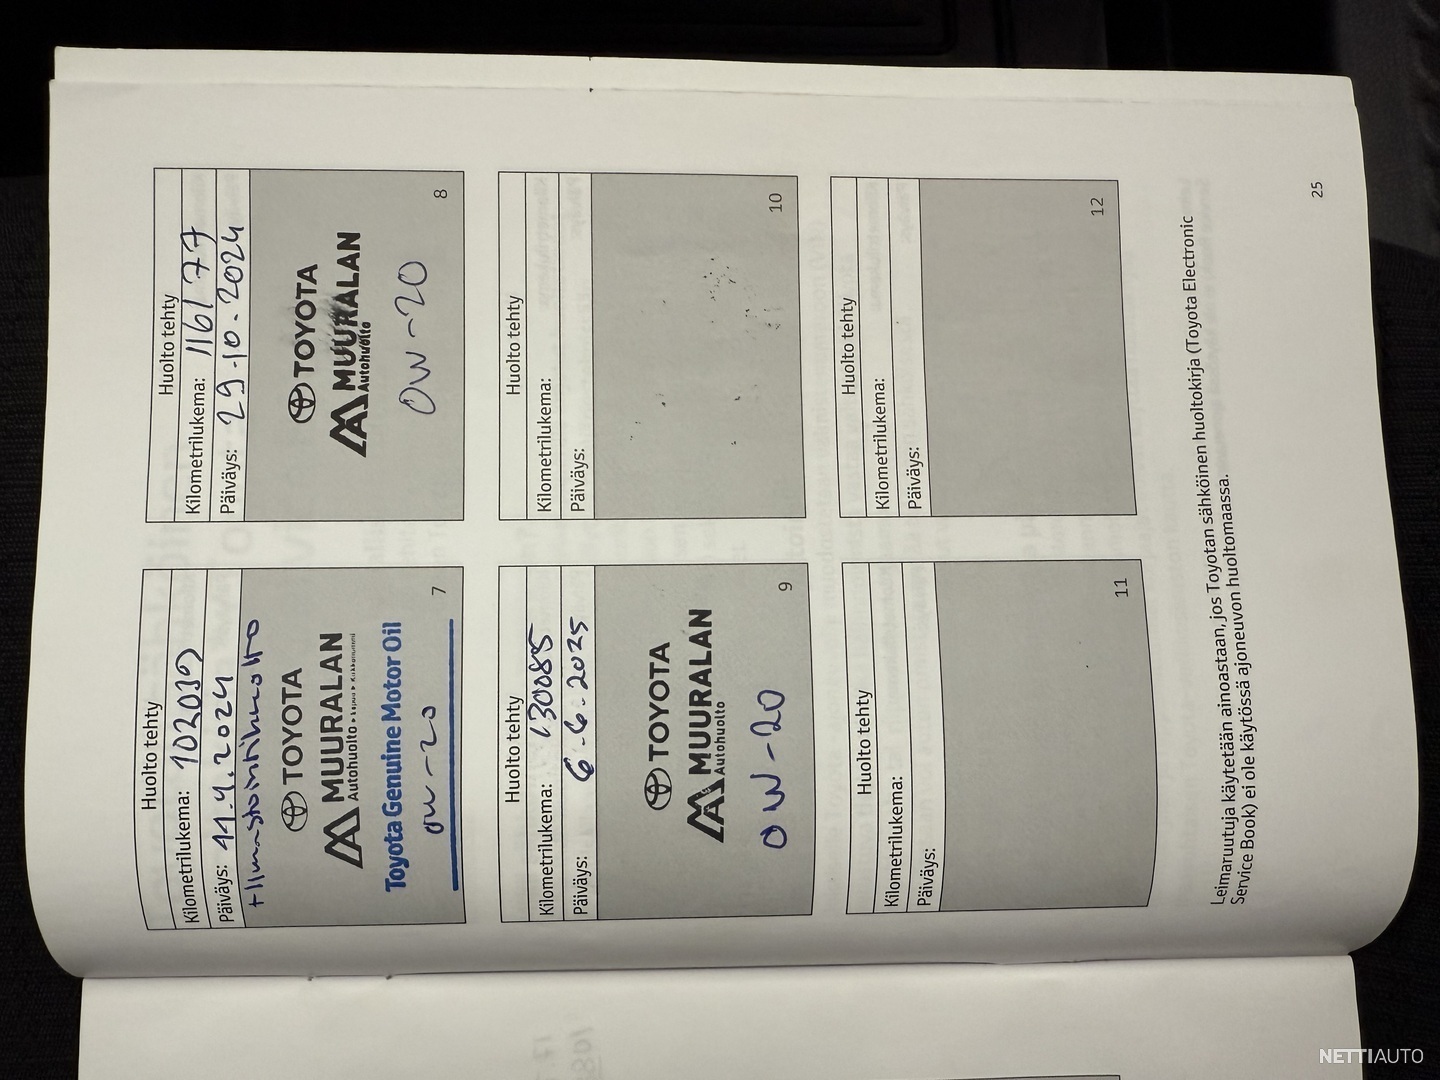 Huolto tehty
Kilometrilukema: 102039
Päiväys: 11.4.2024
+Ilmastointihuolto
TOYOTA
MUURALAN
Autohuolto
Toyota Genuine Motor Oil
0W-20
7
Huolto tehty
Kilometrilukema: 116177
Päiväys: 29.10.2024
TOYOTA
MUURALAN
Autohuolto
0W-20
8
Huolto tehty
Kilometrilukema: 130085
Päiväys: 6.6.2025
TOYOTA
MUURALAN
Autohuolto
0W-20
9
Huolto tehty
Kilometrilukema:
Päiväys:
10
Huolto tehty
Kilometrilukema:
Päiväys:
11
Huolto tehty
Kilometrilukema:
Päiväys:
12
Leimaruutuja käytetään ainoastaan, jos Toyotan sähköinen huoltokirja (Toyota Electronic
Service Book) ei ole käytössä ajoneuvon huoltomaassa.
25
NETTIAUTO